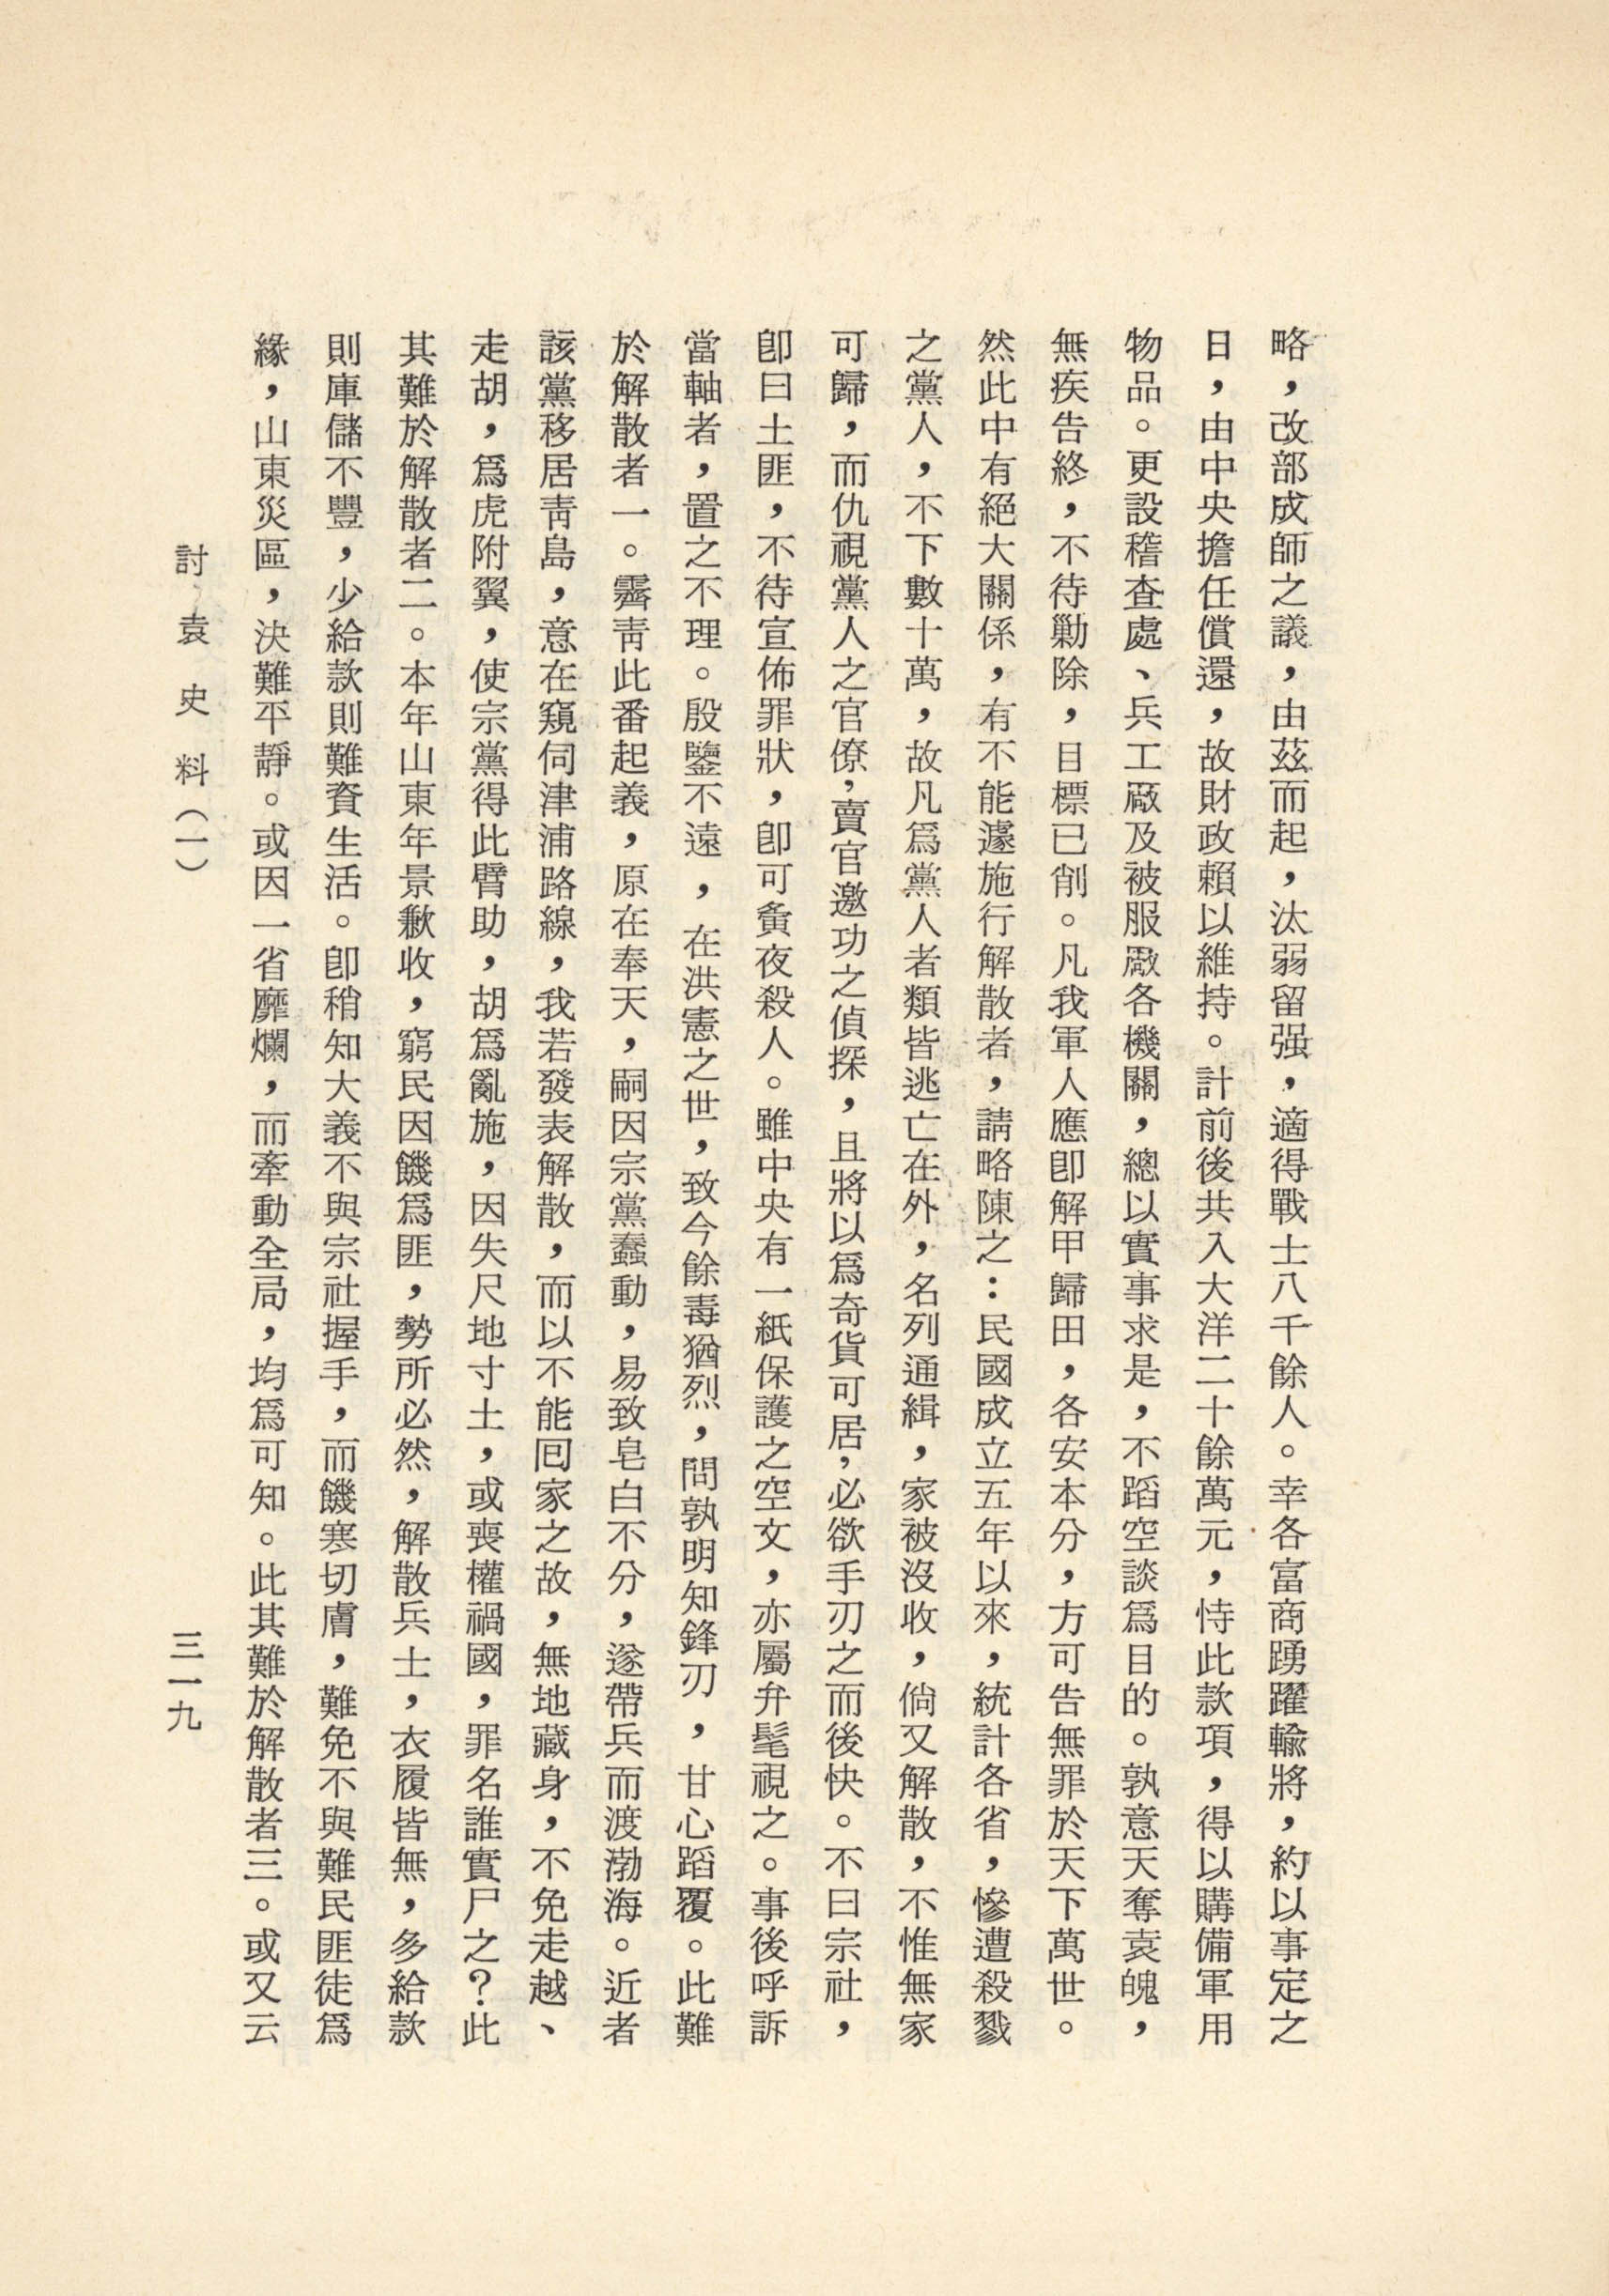 略，改部成師之議，由茲而起，汰弱留强，適得戰士八千餘人。幸各富商踴躍輸將，約以事定之
日，由中央擔任償還，故財政賴以維持。計前後共入大洋二十餘萬元，恃此款項，得以購備軍用
物品。更設稽查處、兵工廠及被服廠各機關，總以實事求是，不蹈空談爲目的。孰意天奪袁魄，
無疾告終，不待勦除，目標已削。凡我軍人應卽解甲歸田，各安本分，方可告無罪於天下萬世。
然此中有絕大關係，有不能遽施行解散者，請略陳之：民國成立五年以來，統計各省，慘遭殺戮
之黨人，不下數十萬，故凡爲黨人者類皆逃亡在外，名列通緝，家被沒收，倘又解散，不惟無家
可歸，而仇視黨人之官僚，賣官邀功之偵探，且將以爲奇貨可居，必欲手刃之而後快。不曰宗社，
卽曰土匪，不待宣佈罪狀，卽可夤夜殺人。雖中央有一紙保護之空文，亦屬弁髦視之。事後呼訴
當軸者，置之不理。殷鑒不遠，在洪憲之世，致今餘毒猶烈，問孰明知鋒刃，甘心蹈覆。此難
於解散者一。霽靑此番起義，原在奉天，嗣因宗黨蠢動，易致皂白不分，遂帶兵而渡渤海。近者
該黨移居靑島，意在窺伺津浦路線，我若發表解散，而以不能囘家之故，無地藏身，不免走越、
走胡，爲虎附翼，使宗黨得此臂助，胡爲亂施，因失尺地寸土，或喪權禍國，罪名誰實尸之？此
其難於解散者二。本年山東年景歉收，窮民因饑爲匪，勢所必然，解散兵士，衣履皆無，多給款
則庫儲不豐，少給款則難資生活。卽稍知大義不與宗社握手，而饑寒切膚，難免不與難民匪徒爲
緣，山東災區，決難平靜。或因一省靡爛，而牽動全局，均爲可知。此其難於解散者三。或又云
討袁史料（一）
三一九